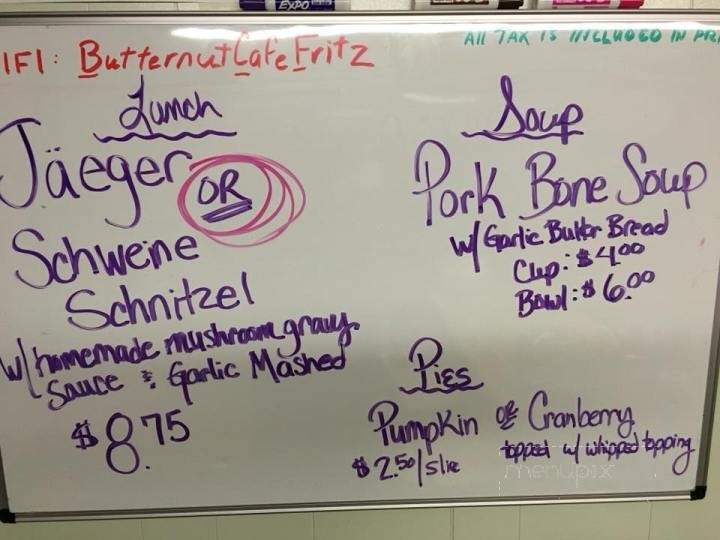 EXPO
IFI: Butternut Cafe Fritz
All TAX IS INCLUDED IN PRI
Lunch
Jäeger OR
Schweine
Schnitzel
w/ homemade mushroom gravy
Sauce & Garlic Mashed
$8.75
Soup
Pork Bone Soup
w/ Garlic Butter Bread
Cup: $4.00
Bowl: $6.00
Pies
Pumpkin OR Cranberry
topped w/ whipped topping
$2.50/slice
menupix